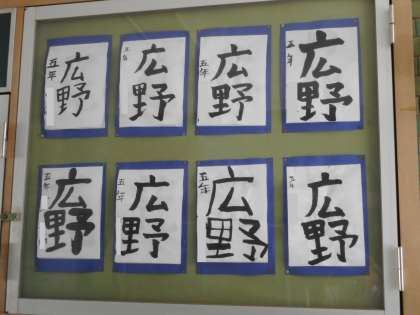 五年 広野
五年 広野
五年 広野
五年 広野
五年 広野
五年 広野
五年 広野
広野